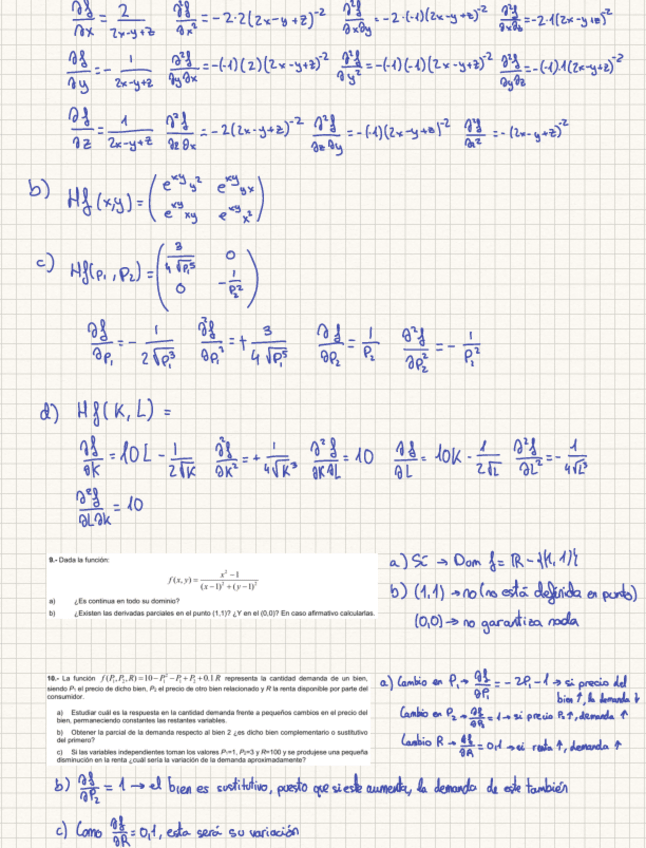 ∂f/∂x = 2/(2x-y+z)   ∂²f/∂x² = -2·2(2x-y+z)⁻²   ∂²f/∂x∂y = -2·(-1)(2x-y+z)⁻²   ∂²f/∂x∂z = -2·1(2x-y+z)⁻²
∂f/∂y = - 1/(2x-y+z)   ∂²f/∂y∂x = -(-1)(2)(2x-y+z)⁻²   ∂²f/∂y² = -(-1)(-1)(2x-y+z)⁻²   ∂²f/∂y∂z = -(-1)·1(2x-y+z)⁻²
∂f/∂z = 1/(2x-y+z)   ∂²f/∂z∂x = -2(2x-y+z)⁻²   ∂²f/∂z∂y = -(-1)(2x-y+z)⁻²   ∂²f/∂z² = -(2x-y+z)⁻²
b) Hf(x,y) = ( e^xy y²   e^xy yx
e^xy xy   e^xy x² )
c) Hf(P₁,P₂) = ( 3/(4√P₁⁵)   0
0   -1/P₂² )
∂f/∂P₁ = - 1/(2√P₁³)   ∂²f/∂P₁² = + 3/(4√P₁⁵)   ∂f/∂P₂ = 1/P₂   ∂²f/∂P₂² = - 1/P₂²
d) Hf(K, L) =
∂f/∂K = 10L - 1/(2√K)   ∂²f/∂K² = + 1/(4√K³)   ∂²f/∂K∂L = 10   ∂f/∂L = 10K - 1/(2√L)   ∂²f/∂L² = - 1/(4√L³)
∂²f/∂L∂K = 10
9.- Dada la función:
f(x,y) = (x²-1)/((x-1)²+(y-1)²)
a) ¿Es continua en todo su dominio?
b) ¿Existen las derivadas parciales en el punto (1,1)? ¿Y en el (0,0)? En caso afirmativo calcularlas.
a) Sí → Dom f = ℝ - {(1, 1)}
b) (1,1) → no (no está definida en punto)
(0,0) → no garantiza nada
10.- La función f(P₁,P₂,R)=10-P₁²-P₁+P₂+0.1R representa la cantidad demanda de un bien,
siendo P₁ el precio de dicho bien, P₂ el precio de otro bien relacionado y R la renta disponible por parte del
consumidor.
a) Estudiar cuál es la respuesta en la cantidad demanda frente a pequeños cambios en el precio del
bien, permaneciendo constantes las restantes variables.
b) Obtener la parcial de la demanda respecto al bien 2 ¿es dicho bien complementario o sustitutivo
del primero?
c) Si las variables independientes toman los valores P₁=1, P₂=3 y R=100 y se produjese una pequeña
disminución en la renta ¿cuál sería la variación de la demanda aproximadamente?
a) Cambio en P₁ → ∂f/∂P₁ = -2P₁-1 → si precio del
bien ↑, la demanda ↓
Cambio en P₂ → ∂f/∂P₂ = 1 → si precio P₂↑, demanda ↑
Cambio R → ∂f/∂R = 0,1 → si renta ↑, demanda ↑
b) ∂f/∂P₂ = 1 → el bien es sustitutivo, puesto que si este aumenta, la demanda de este también
c) Como ∂f/∂R = 0,1, esta será su variación